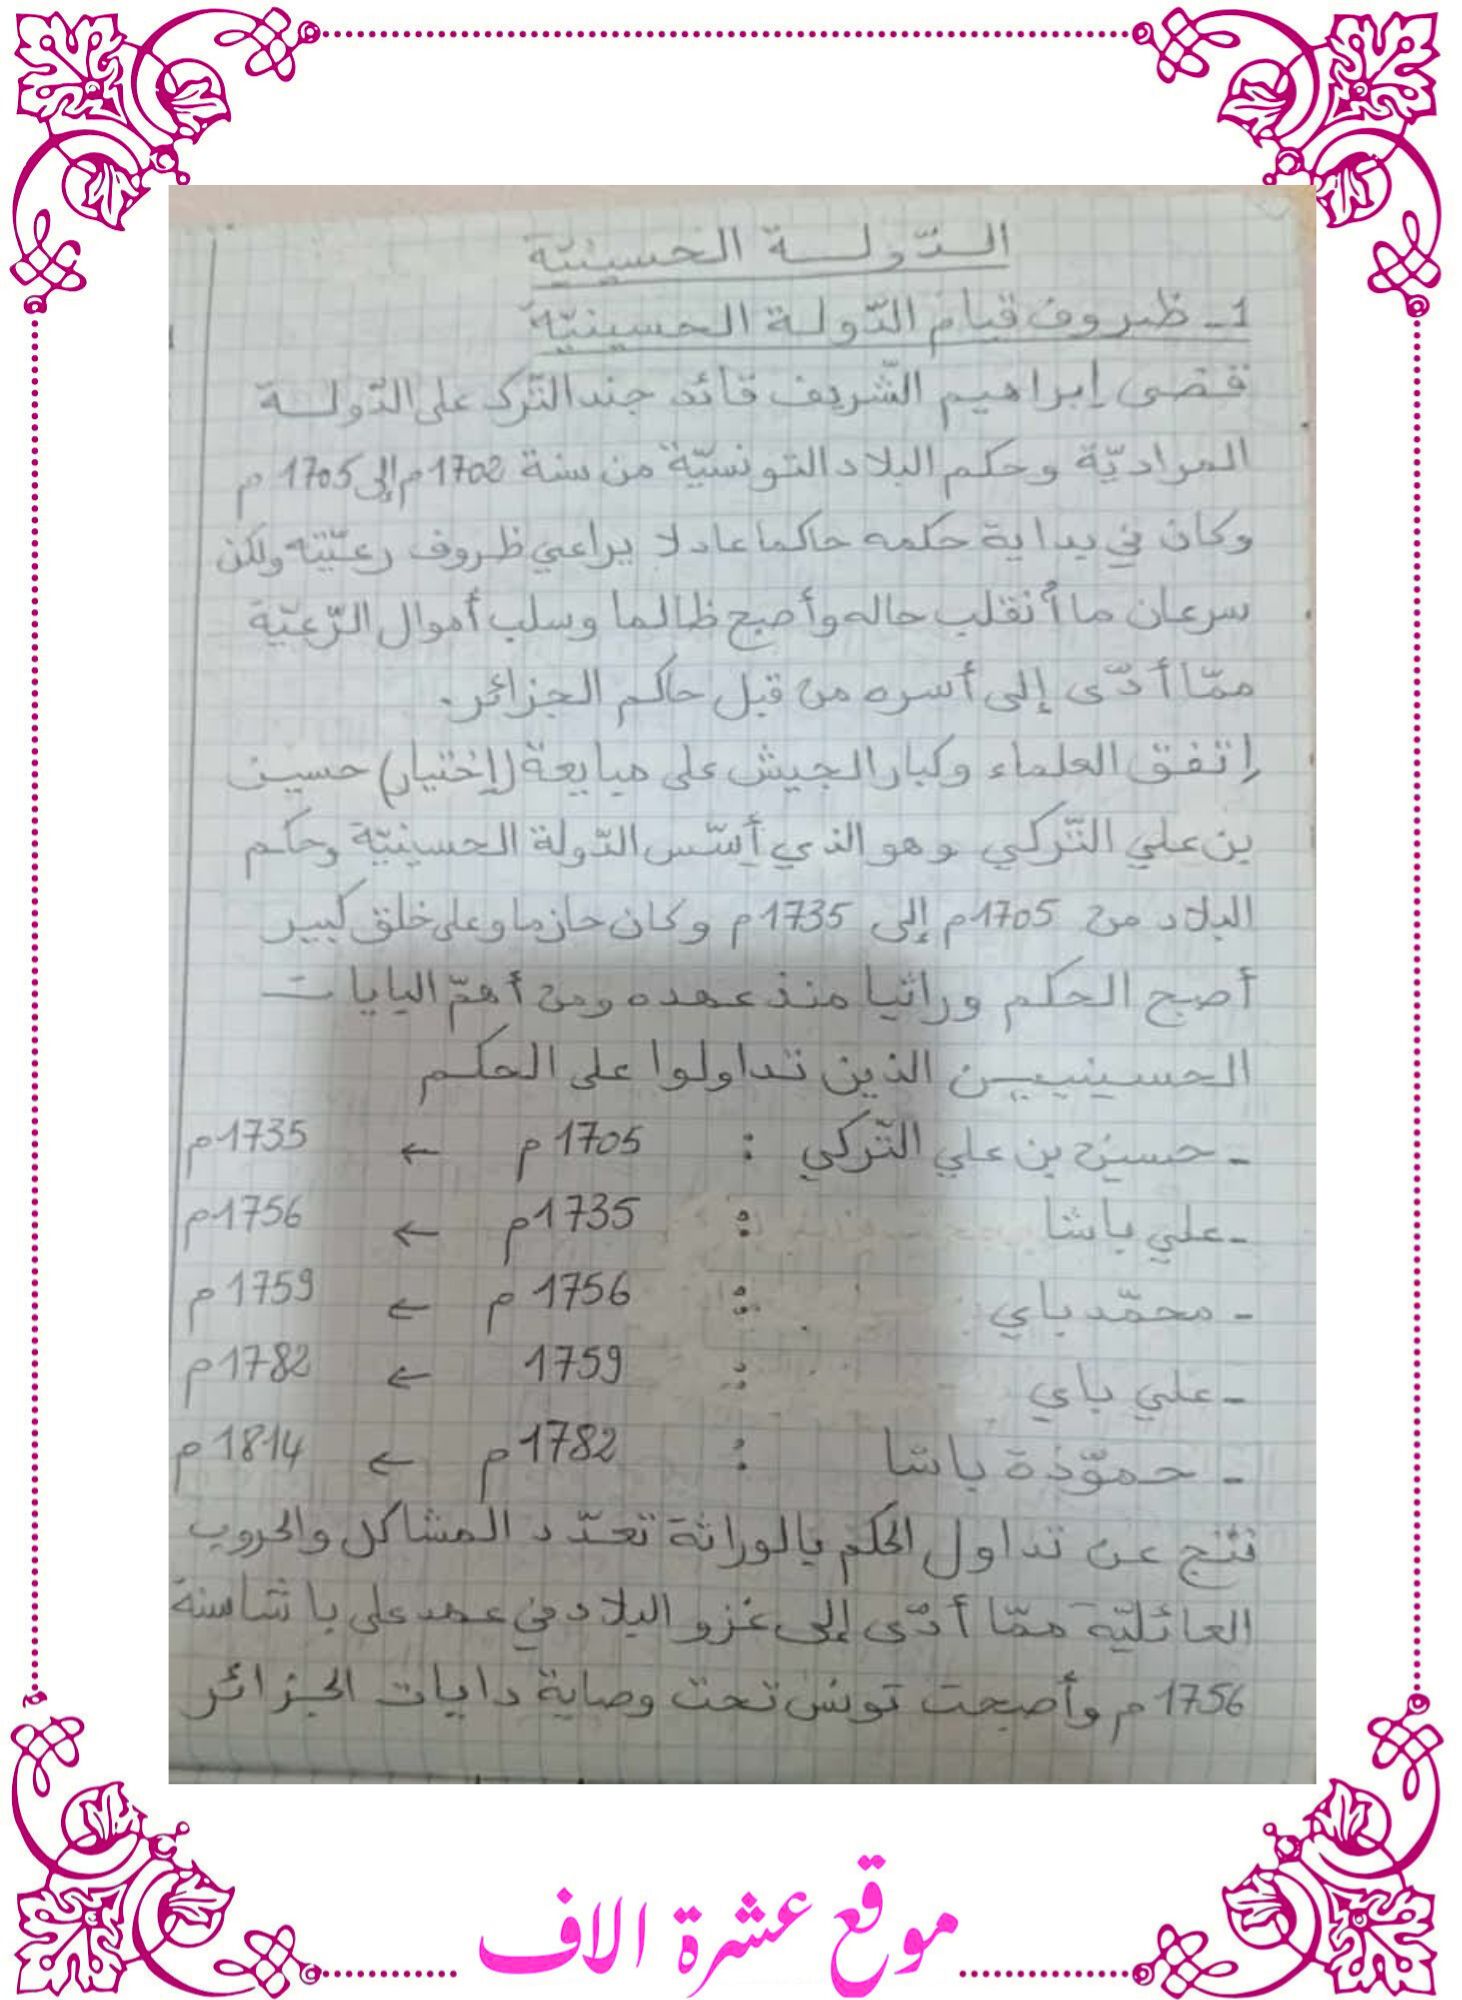 الدّولة الحسينيّة
1- ظروف قيام الدّولة الحسينيّة
قضى إبراهيم الشّريف قائد جند التّرك على الدّولة
المراديّة وحكم البلاد التونسيّة من سنة 1702م إلى 1705 م
وكان في بداية حكمه حاكما عادلا يراعي ظروف رعيّته ولكن
سرعان ما أنقلب حاله وأصبح ظالما وسلب أموال الرّعيّة
ممّا أدّى إلى أسره من قبل حاكم الجزائر.
إتفق العلماء وكبار الجيش على مبايعة (إختيار) حسين
بن علي التّركي وهو الذي أسّس الدّولة الحسينيّة وحكم
البلاد من 1705م إلى 1735م وكان حازما وعلى خلق كبير
أصبح الحكم وراثيا منذ عهده ومن أهمّ البايات
الحسينيين الذين تداولوا على الحكم
- حسين بن علي التّركي : 1705م ← 1735م
- علي باشا : 1735م ← 1756م
- محمّد باي : 1756م ← 1759م
- علي باي : 1759 ← 1782م
- حمّودة باشا : 1782م ← 1814م
نتج عن تداول الحكم بالوراثة تعدّد المشاكل والحروب
العائليّة ممّا أدّى إلى غزو البلاد في عهد علي باشا سنة
1756 م وأصبحت تونس تحت وصاية دايات الجزائر
موقع عشرة الاف